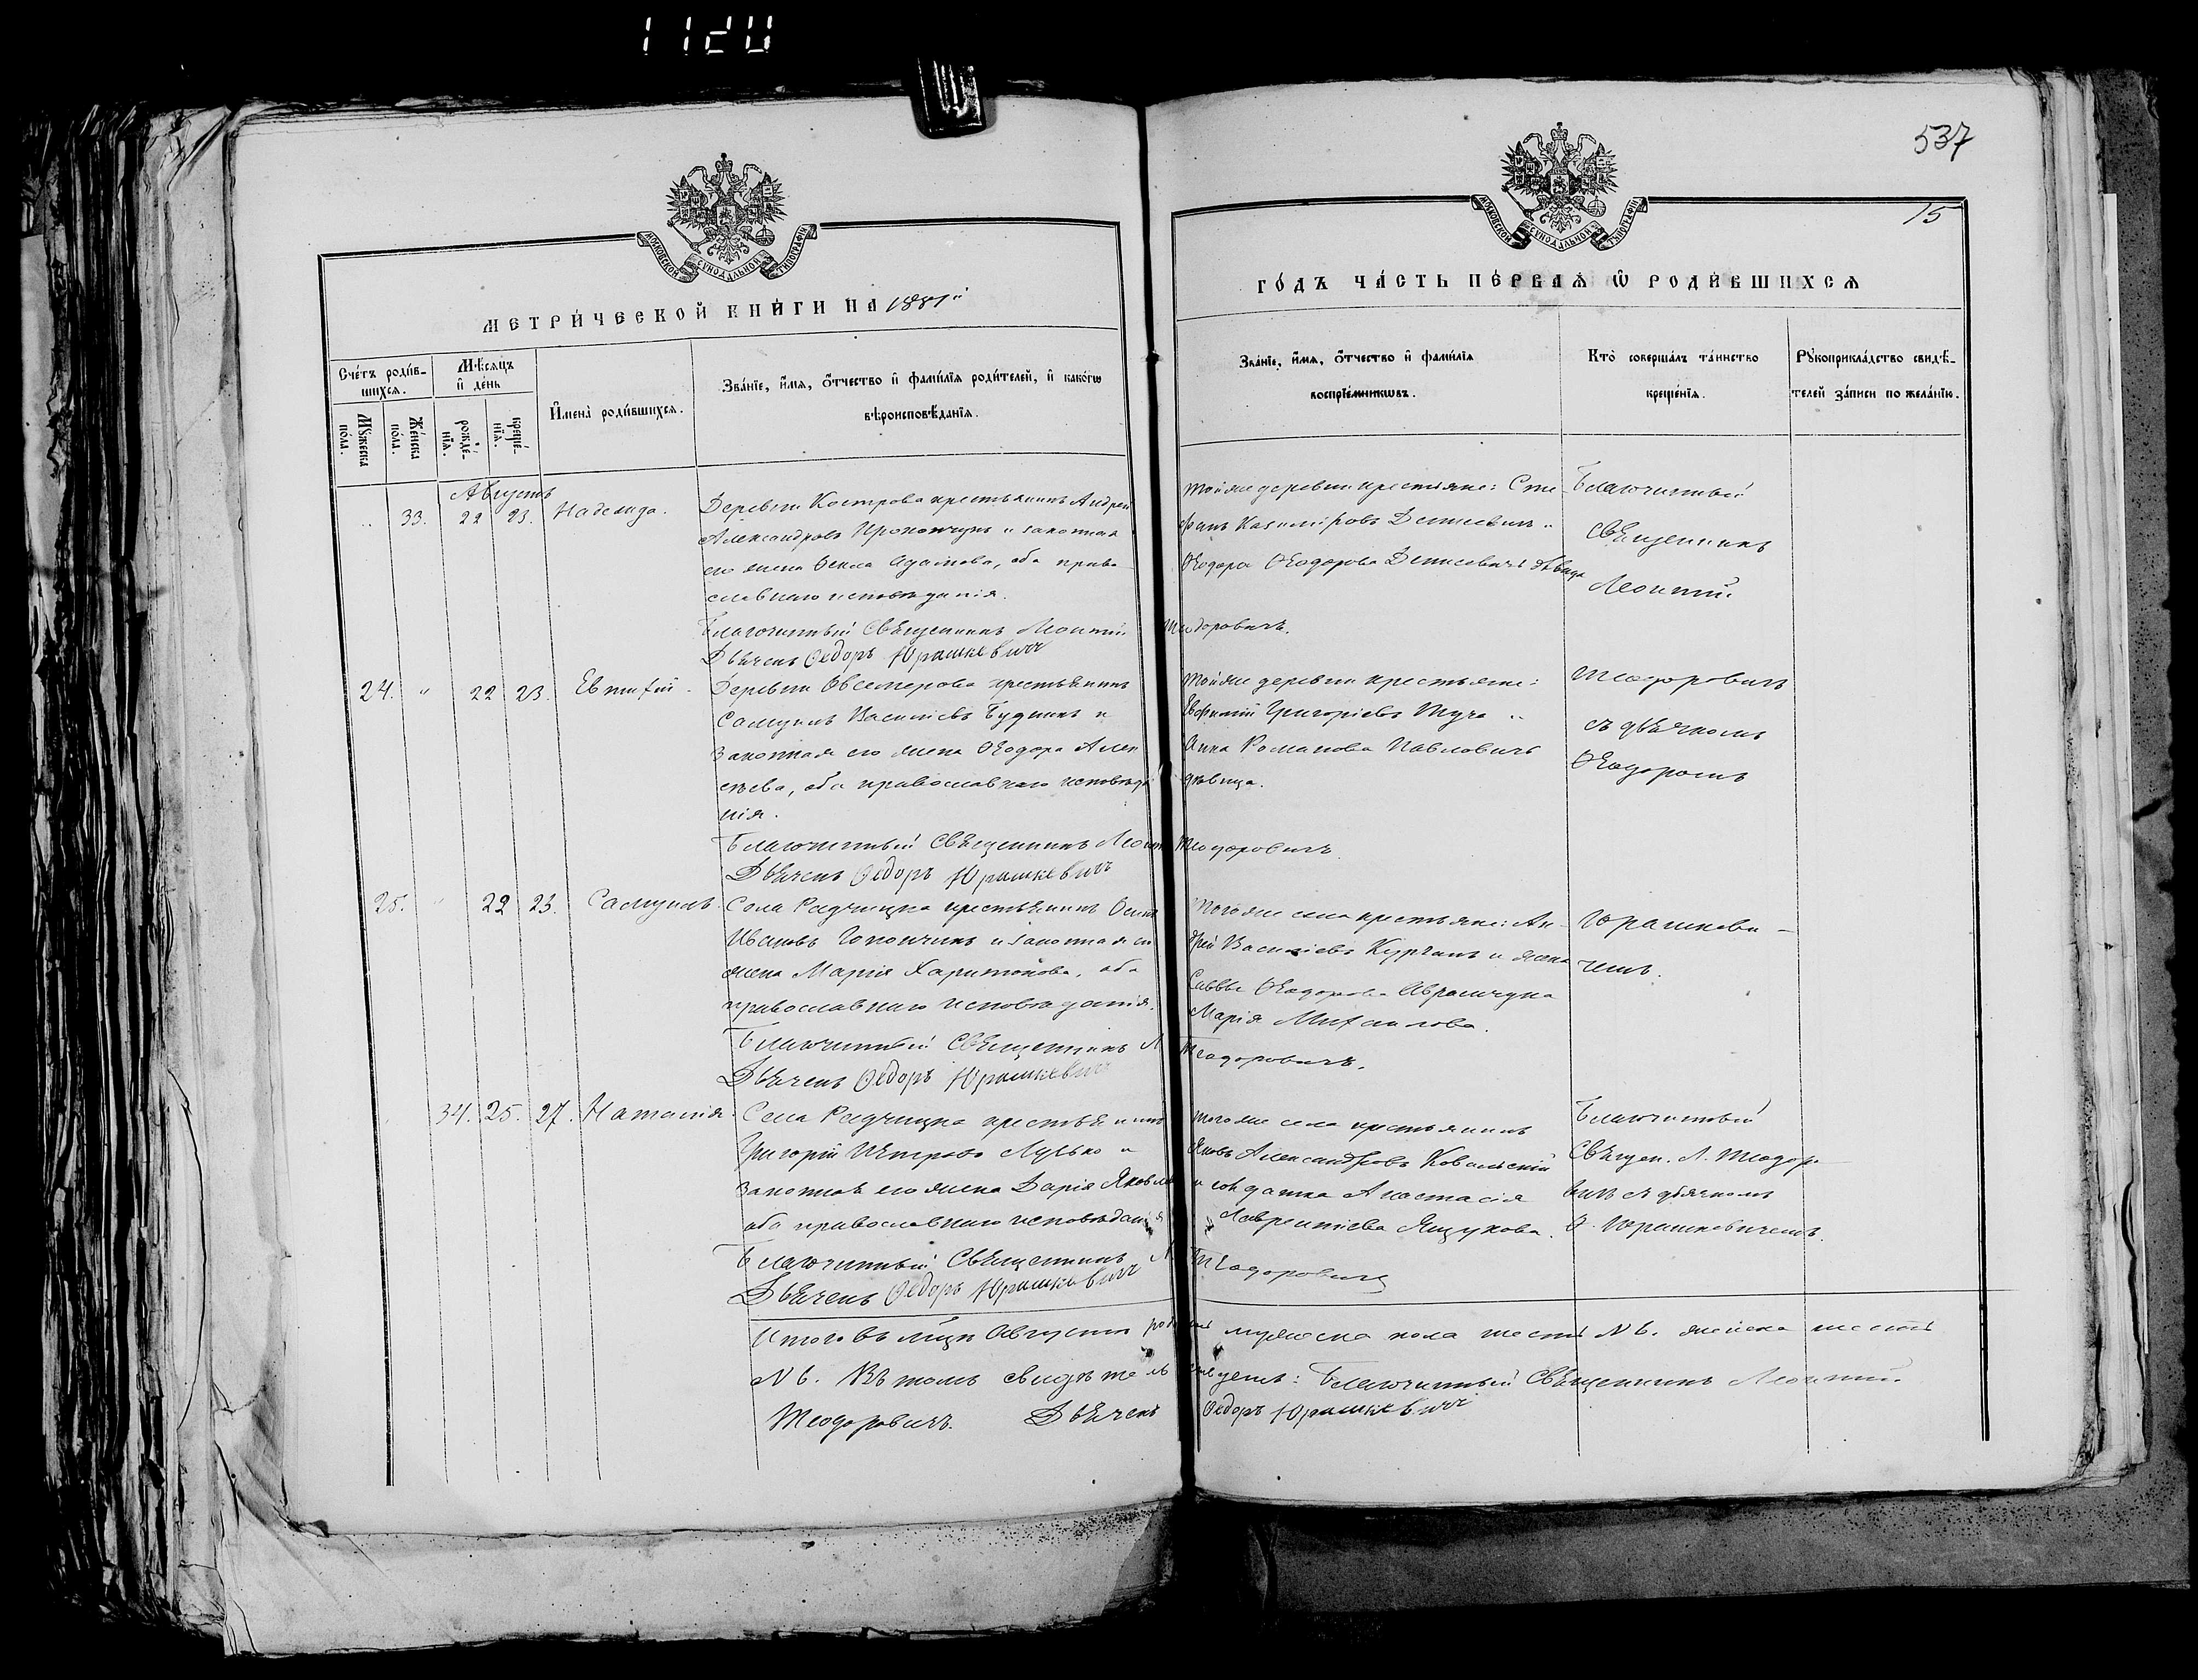 537
15
МОСКОВСКОЙ СѴНОДАЛЬНОЙ ТИПОГРАФІИ
МОСКОВСКОЙ СѴНОДАЛЬНОЙ ТИПОГРАФІИ
МЕТРИ́ЧЕСКОЙ КНИ́ГИ НА 1881й
ГО́ДЪ ЧА́СТЬ ПЕ́РВАѦ Ѿ РОДИ́ВШИХСѦ
Сче́тъ роди́в-
шихсѧ.
Мѣ́сѧцъ
и҆ де́нь
Мꙋ́жеска по́ла.
Же́нска по́ла.
рожде́-нїѧ.
креще́-нїѧ.
И҆мена̀ роди́вшихсѧ.
Зва́нїе, и҆́мѧ, ѻ҆́тчество и҆ фами́лїѧ роди́телей, и҆ како́гѡ
вѣроисповѣ́данїѧ.
Зва́нїе, и҆́мѧ, ѻ҆́тчество и҆ фами́лїѧ
воспрїе́мникѡвъ.
Кто̀ соверша́лъ та́инство
креще́нїѧ.
Рꙋкоприкла́дство свидѣ́-
телей за́писи по жела́нїю.
Августъ
33. 22 23. Надежда.
Деревни Кострова крестьянинъ Андрей
Александровъ Прокопчукъ и законная
его жена Ѳекла Адамова, оба право
славнаго исповѣданія.
Благочинный Священникъ Леонтій
Дьячекъ Ѳедоръ Юрашкевичъ
Тойже деревни крестьяне: Сте-
фанъ Казиміровъ Денисевичъ и
Ѳеодора Ѳеодорова Денисевичъ дѣвица
Теодоровичъ.
Благочинный
Священникъ
Леонтій
24. " 22 23. Евтихій.
Деревни крестьянинъ
Самуилъ Василіевъ Будникъ и
законная его жена Ѳеодора Алек
сѣева, оба православнаго исповѣда
нія.
Благочинный Священникъ Леонт
Дьячекъ Ѳедоръ Юрашкевичъ
Тойже деревни крестьяне:
Евфимій Григоріевъ и
Анна Романова Павловичъ
дѣвица.
Теодоровичъ
Теодоровичъ
съ дьячкомъ
Ѳеодоромъ
25. " 22 23. Самуилъ.
Села Радчицка крестьянинъ
Ивановъ и законная его
жена Марія Харитонова, оба
православнаго исповѣданія.
Благочинный Священникъ Л
Дьячекъ Ѳедоръ Юрашкевичъ
Тогоже села крестьяне: Ан-
дрей Василіевъ Курганъ и жена
Саввы Ѳеодорова
Марія Михаилова.
Теодоровичъ.
Юрашкеви-
чемъ.
34. 25. 27. Наталія.
Села Радчицка крестьянинъ
Григорій Петровъ и
законная его жена Дарія Яковлева
оба православнаго исповѣданія
Благочинный Священникъ Л
Дьячекъ Ѳедоръ Юрашкевичъ
Тогоже села крестьянинъ
Яковъ Александровъ Ковальскій
и солдатка Анастасія
Лаврентіева Ящукова.
Теодоровичъ
Благочинный
Священ. Л. Теодоро
вичъ съ дьячкомъ
Ѳ. Юрашкевичемъ.
Итого въ мцѣ Августѣ мужеска пола шесть N 6. женска шесть
N 6. Въ томъ свидѣтельствуемъ: Благочинный Священникъ Леонтій
Теодоровичъ. Дьячекъ Ѳедоръ Юрашкевичъ